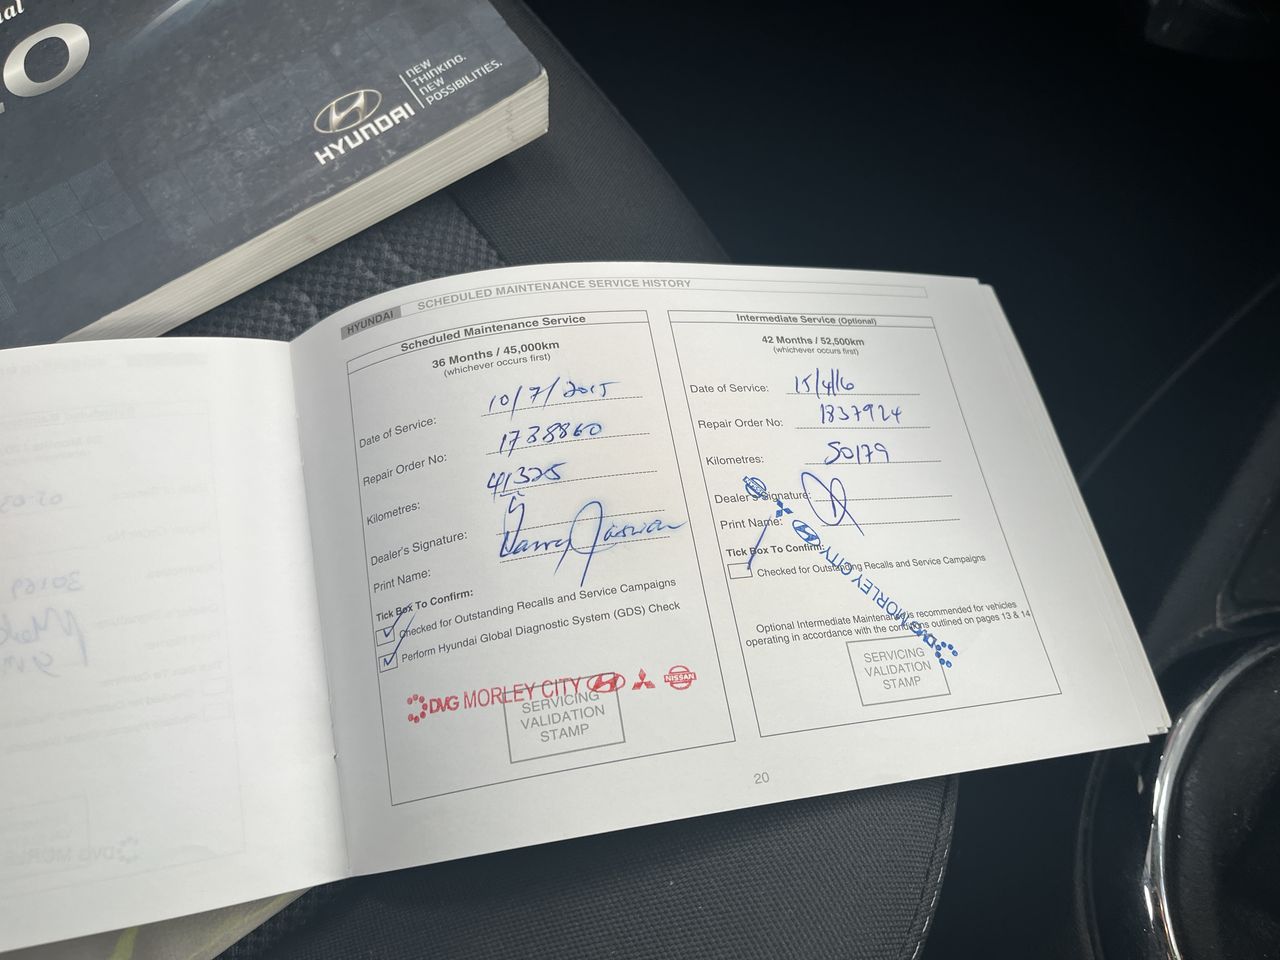 NEW
THINKING.
NEW
POSSIBILITIES.
HYUNDAI
HYUNDAI SCHEDULED MAINTENANCE SERVICE HISTORY
Scheduled Maintenance Service
36 Months / 45,000km
(whichever occurs first)
Date of Service: 10/7/2015
Repair Order No: 1738860
Kilometres: 41325
Dealer's Signature:
Print Name:
Tick Box To Confirm:
Checked for Outstanding Recalls and Service Campaigns
Perform Hyundai Global Diagnostic System (GDS) Check
DVG MORLEY CITY NISSAN
SERVICING
VALIDATION
STAMP
Intermediate Service (Optional)
42 Months / 52,500km
(whichever occurs first)
Date of Service: 15/4/16
Repair Order No: 1837924
Kilometres: 50179
Dealer's Signature:
Print Name:
Tick Box To Confirm:
Checked for Outstanding Recalls and Service Campaigns
DVG MORLEY CITY
Optional Intermediate Maintenance is recommended for vehicles
operating in accordance with the conditions outlined on pages 13 & 14
SERVICING
VALIDATION
STAMP
20